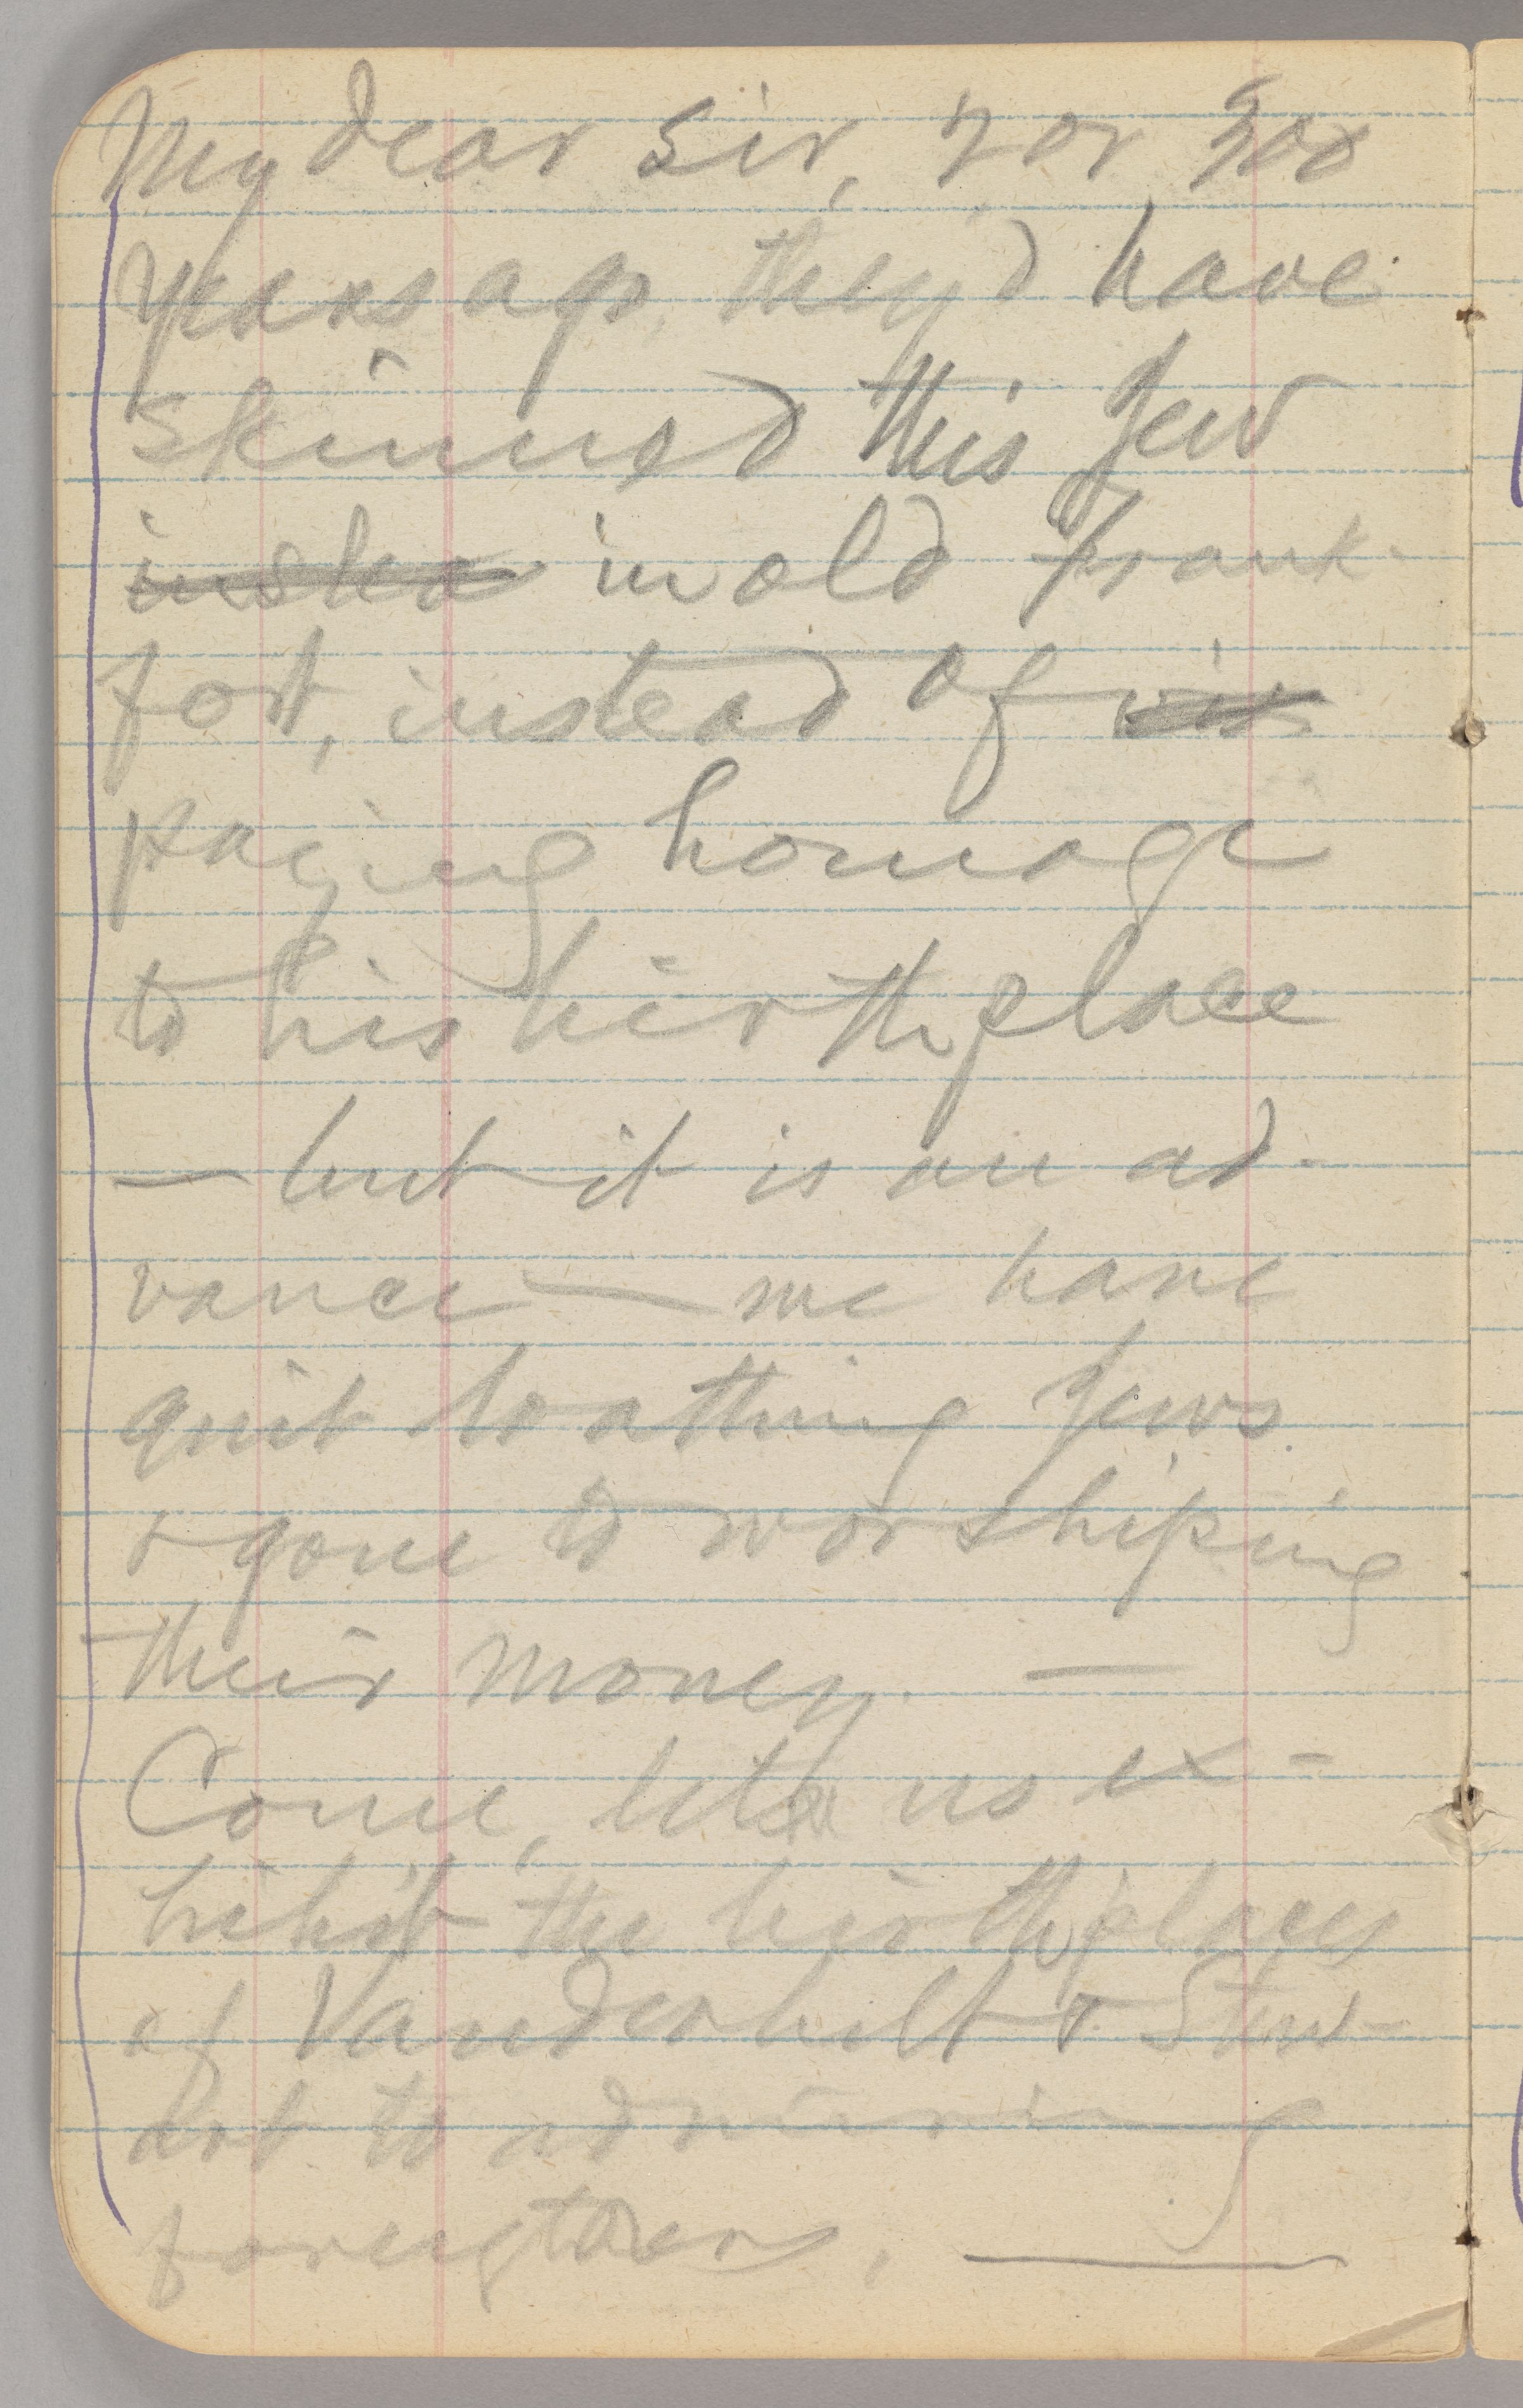 My dear sir, 2 or 300
years ago, they'd have
skinned this Jew
inste in old Frank-
fort, instead of vis
paying homage
to his birthplace
— but it is an ad-
vance — we have
quit loathing Jews
& gone to worshiping
their money. —
Come, let us ex-
hibit the birthplaces
of Vanderbilt & Stew-
art to admiring
foreigners. ——